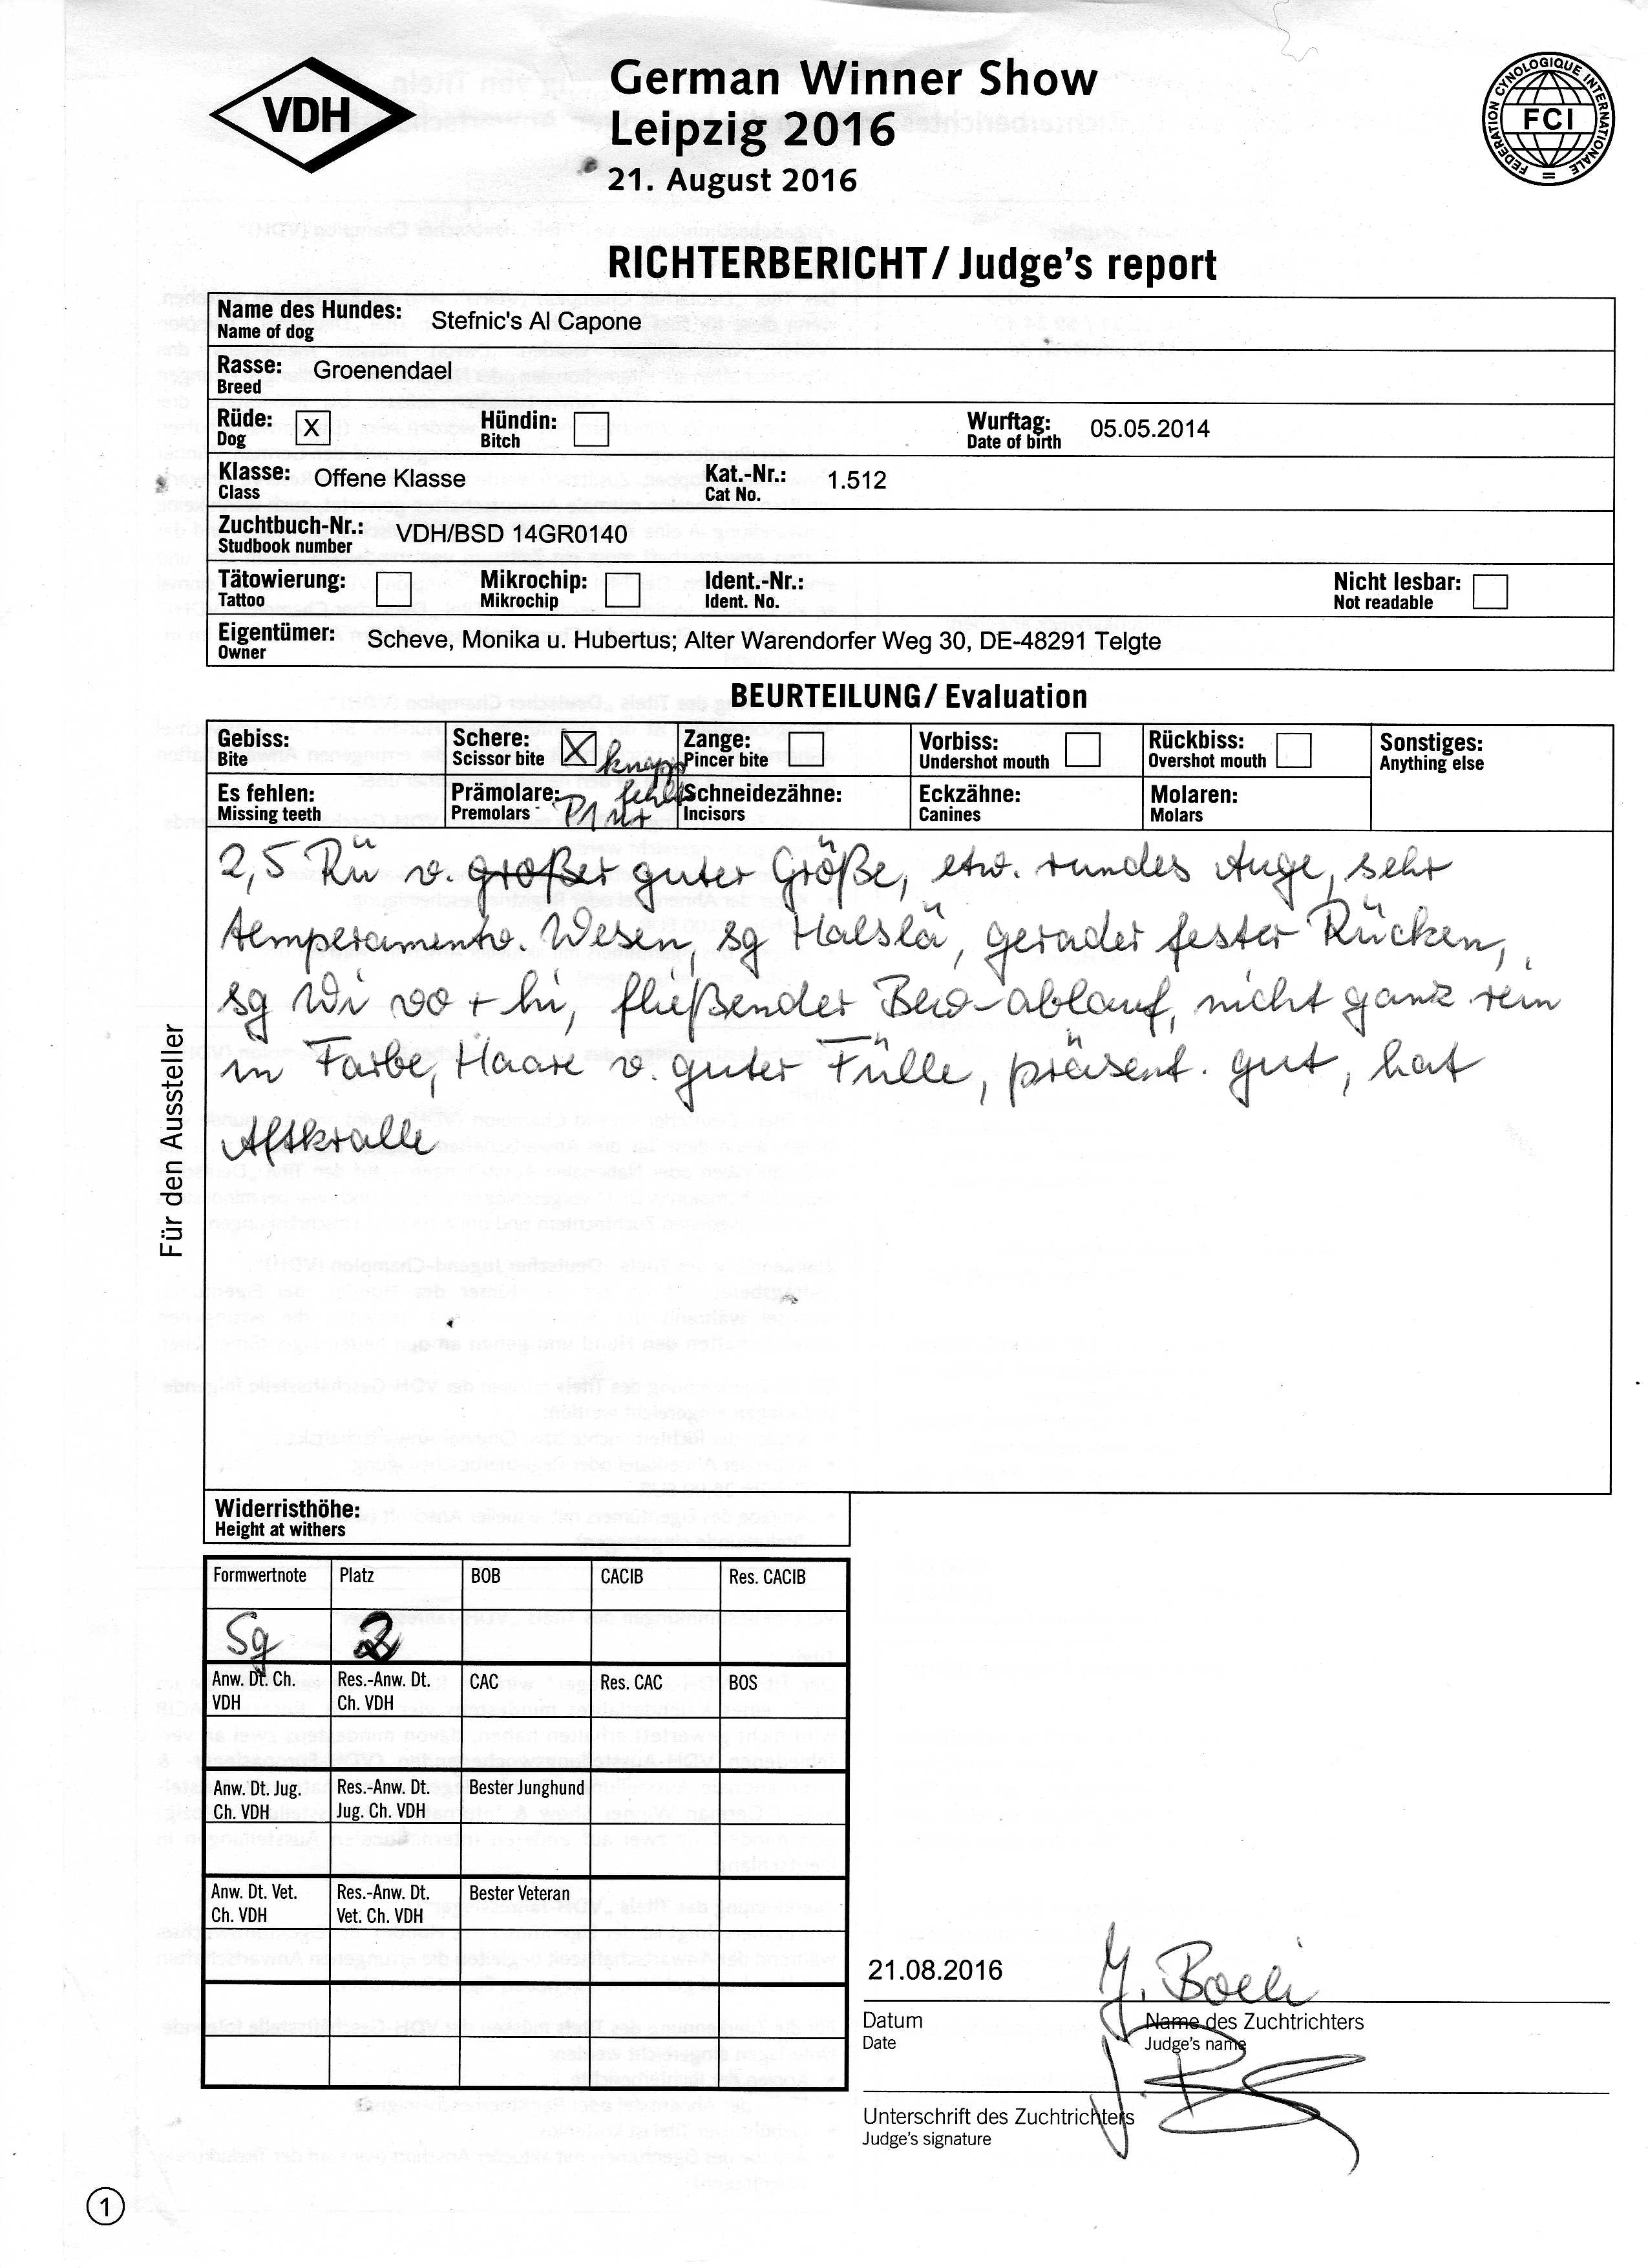 VDH
German Winner Show
Leipzig 2016
21. August 2016
FEDERATION CYNOLOGIQUE INTERNATIONALE
FCI
RICHTERBERICHT / Judge's report
Name des Hundes: Stefnic's Al Capone
Name of dog
Rasse: Groenendael
Breed
Rüde: X Hündin: Wurftag: 05.05.2014
Dog Bitch Date of birth
Klasse: Offene Klasse Kat.-Nr.: 1.512
Class Cat No.
Zuchtbuch-Nr.: VDH/BSD 14GR0140
Studbook number
Tätowierung: Mikrochip: Ident.-Nr.: Nicht lesbar:
Tattoo Mikrochip Ident. No. Not readable
Eigentümer: Scheve, Monika u. Hubertus; Alter Warendorfer Weg 30, DE-48291 Telgte
Owner
BEURTEILUNG / Evaluation
Gebiss: Schere: X knapp Zange: Vorbiss: Rückbiss: Sonstiges:
Bite Scissor bite Pincer bite Undershot mouth Overshot mouth Anything else
Es fehlen: Prämolare: P1 fehlt Schneidezähne: Eckzähne: Molaren:
Missing teeth Premolars Incisors Canines Molars
2,5 Rü v. großer guter Größe, etw. rundes Auge, sehr
temperamentv. Wesen, sg Halslä, gerader fester Rücken,
sg Wi vo + hi, fließender Bew-ablauf, nicht ganz rein
in Farbe, Haare v. guter Fülle, präsent. gut, hat
Aftkralle
Für den Aussteller
Widerristhöhe:
Height at withers
Formwertnote Platz BOB CACIB Res. CACIB
Sg 2
Anw. Dt. Ch. Res.-Anw. Dt. CAC Res. CAC BOS
VDH Ch. VDH
Anw. Dt. Jug. Res.-Anw. Dt. Bester Junghund
Ch. VDH Jug. Ch. VDH
Anw. Dt. Vet. Res.-Anw. Dt. Bester Veteran
Ch. VDH Vet. Ch. VDH
21.08.2016
Datum Name des Zuchtrichters
Date Judge's name
Unterschrift des Zuchtrichters
Judge's signature
1